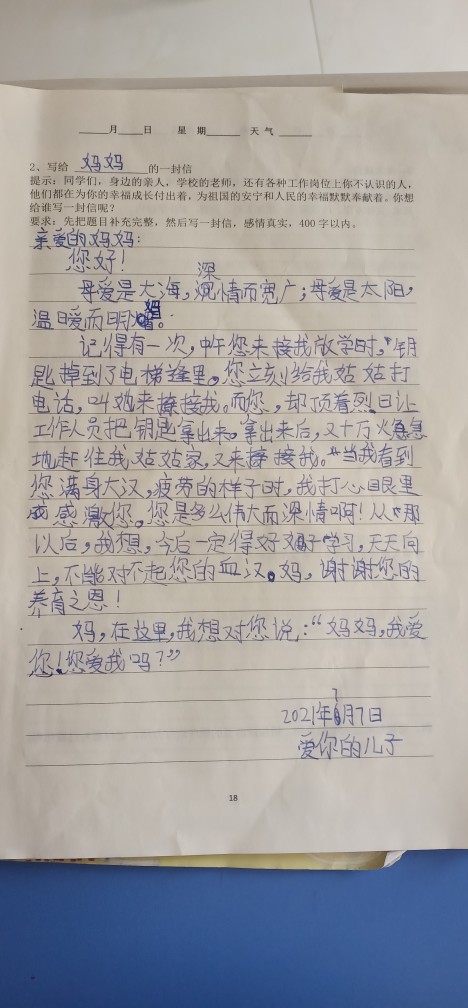 _____月____日 星 期______ 天 气 ______
2、写给 妈妈 的一封信
提示：同学们，身边的亲人，学校的老师，还有各种工作岗位上你不认识的人，
他们都在为你的幸福成长付出着，为祖国的安宁和人民的幸福默默奉献着。你想
给谁写一封信呢？
要求：先把题目补充完整，然后写一封信，感情真实，400 字以内。
亲爱的妈妈：
您好！
母爱是大海，深情而宽广；母爱是太阳，
温暖而明媚。
记得有一次，中午您来接我放学时，钥
匙掉到了电梯缝里。您立刻给我姑姑打
电话，叫她来接我。而您，却顶着烈日让
工作人员把钥匙拿出来。拿出来后，又十万火急
地赶往我姑姑家，又来接我。当我看到
您满身大汉，疲劳的样子时，我打心眼里
感激您。您是多么伟大而深情啊！从那
以后，我想，今后一定得好好学习，天天向
上，不能对不起您的血汉。妈，谢谢您的
养育之恩！
妈，在这里，我想对您说：“妈妈，我爱
您！您爱我吗？”
2021年7月7日
爱你的儿子
18